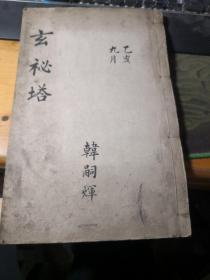 乙亥
九月
韓嗣煇
玄祕塔